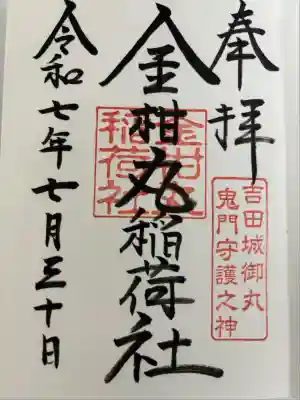 奉拝
吉田城御丸
鬼門守護之神
金柑丸稲荷社
金柑丸
稲荷社
令和七年七月三十日